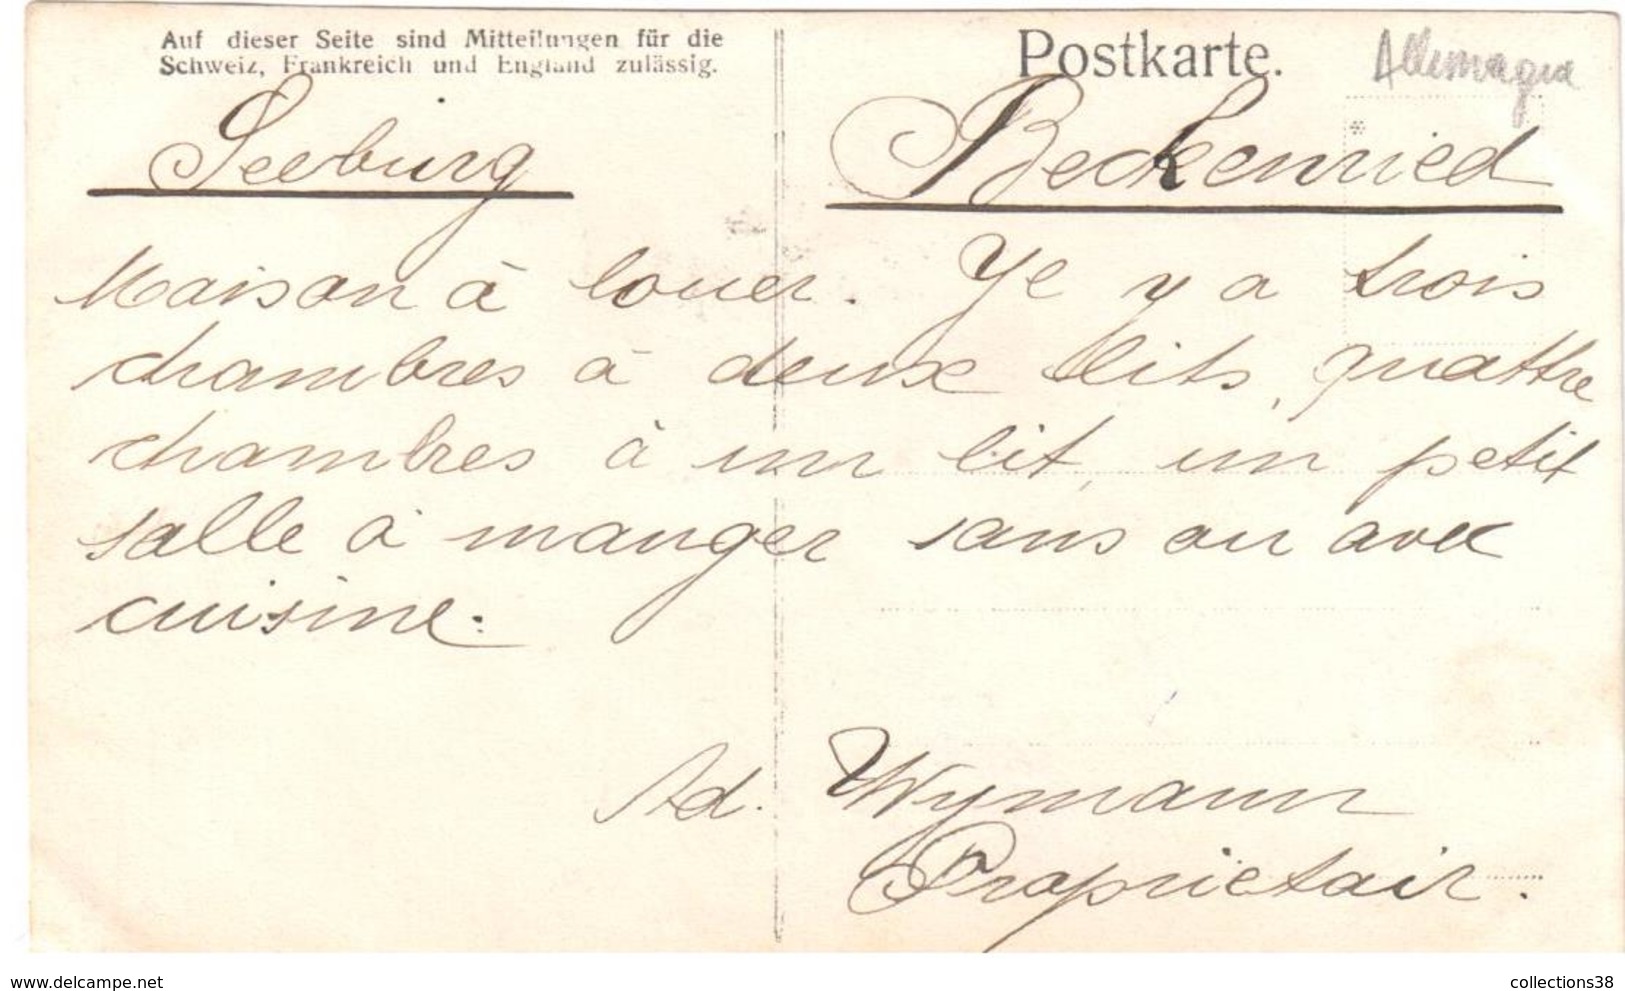 Auf dieser Seite sind Mitteilungen für die
Schweiz, Frankreich und England zulässig.
Postkarte.
Allemagne
Seeburg Beckenried
Maison à louer. Ye y a trois
chambres à deux lits, quattre
chambres à un lit, un petit
salle à manger sans ou avec
cuisine.
Ad. Wymann
Proprietair.
www.delcampe.net
collections38